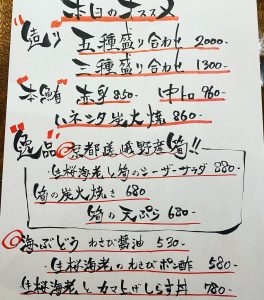 本日のオススメ
造り 五種盛り合わせ 2000-
三種盛り合わせ 1300-
本鮪 赤身 850- 中トロ 960-
ハネシタ炭火焼 860-
逸品 京都嵯峨野産筍!!
生桜海老と筍のシーザーサラダ 880-
筍の炭火焼き 680
筍の天ぷら 680-
海ぶどう わさび醤油 530-
生桜海老のわさびポン酢 580-
生桜海老とカマアゲしらす丼 780-